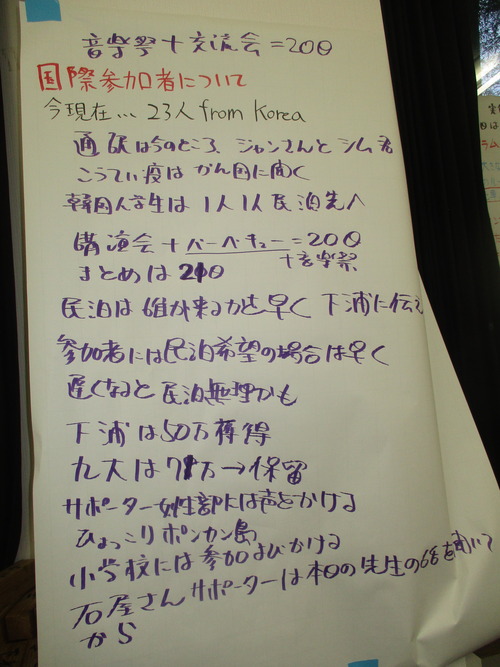 音楽祭＋交流会＝200
国際参加者について
今現在… 23人 from Korea
通訳は今のところ、ジャンさんと シム君
こうてい疫は かん国に聞く
韓国人学生は 1人1人 民泊先へ
講演会＋バーベキュー＝200
＋音楽祭
まとめは 210
民泊は 誰が来るかを 早く 下浦に伝え
参加者には民泊希望の場合は早く
遅くなると 民泊無理かも
下浦は50万獲得
九大は 71万→保留
サポーター女性部には声をかける
ひょっこりポンカン島
小学校には参加よびかける
石屋さん サポーターは 本日の先生の話を聞いて
から